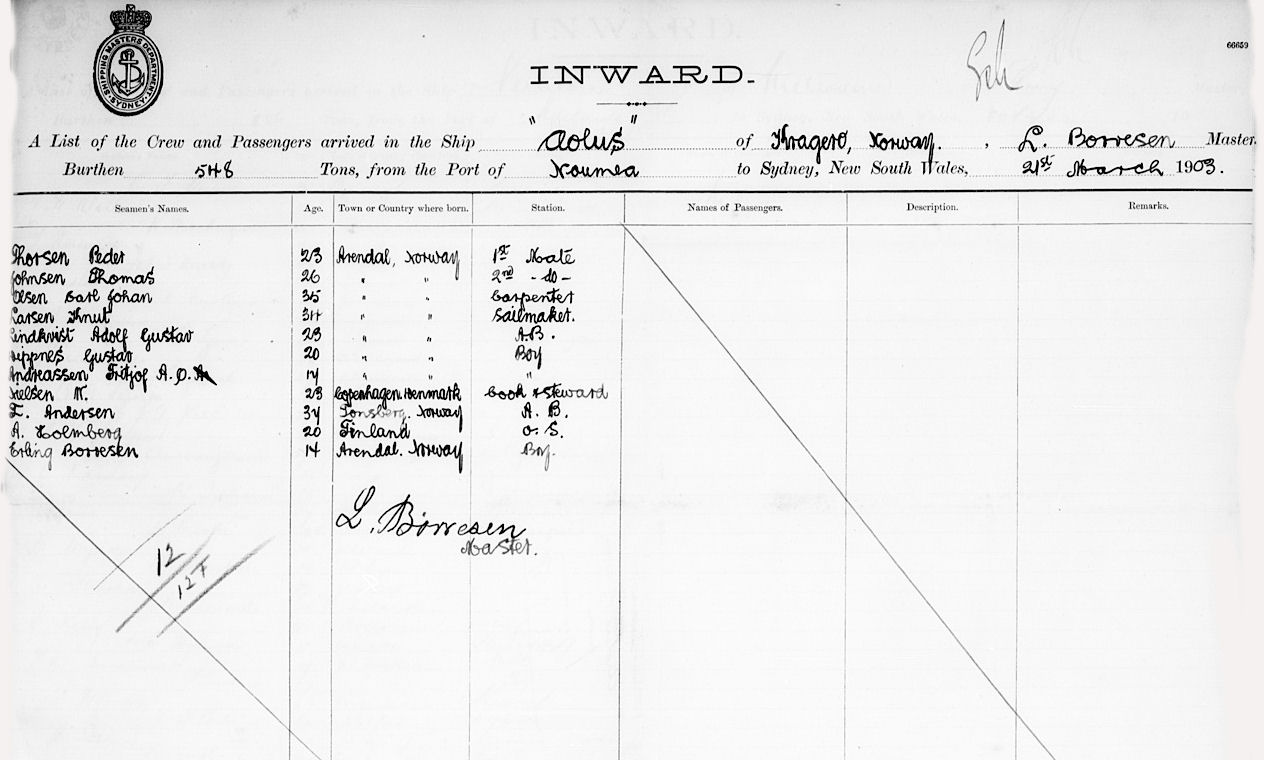 SHIPPING MASTERS DEPARTMENT. SYDNEY.
66659
INWARD.
A List of the Crew and Passengers arrived in the Ship "Aolus" of Kragerö, Norway. , L. Borresen Master
Burthen 548 Tons, from the Port of Noumea to Sydney, New South Wales, 21st March 1903.
Seamen's Names. Age. Town or Country where born. Station. Names of Passengers. Description. Remarks.
Thorsen Peder 23 Arendal, Norway 1st Mate
Johnsen Thomas 26 " " 2nd - do -
Olsen Carl Johan 35 " " Carpenter
Larsen Knut 34 " " Sailmaker.
Lindkvist Adolf Gustav 23 " " A.B.
Gustav 20 " " Boy
Andreassen Fritjof A. O. 17 " " "
Nielsen W. 23 Copenhagen. Denmark Cook & Steward
Andersen 37 Tonsberg. Norway A. B.
A. Holmberg 20 Finland O. S.
Erling Borresen 14 Arendal. Norway Boy.
L. Börresen
Master.
12